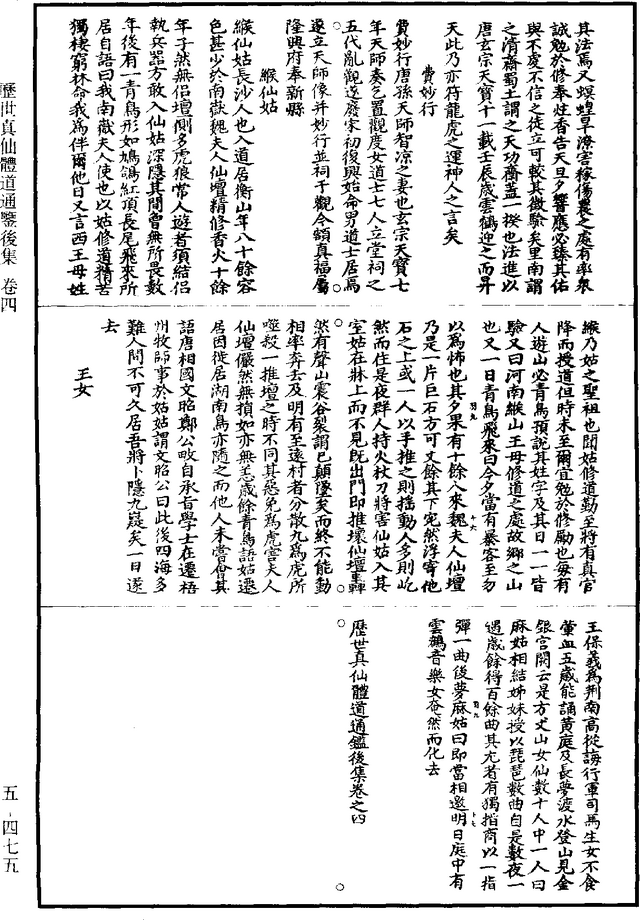 歷世真仙體道通鑒後集 卷四
其法焉又螟蝗旱潦害稼傷農之處有率衆
誠勉於修奉炷香告天旦夕響應必臻其佑
與不虔不信之徒立可較其徵驗矣里南謂
之清齋蜀土謂之天功齋蓋一揆也法進以
唐玄宗天寶十一載壬辰歲雲鶴迎之而昇
天此乃亦符龍虎之運神人之言矣
費妙行
費妙行唐孫天師智涼之妻也玄宗天寶七
年天師奏乞置觀度女道士七人立堂祠之
五代亂觀遂廢宋初復興始命男道士居焉
邊立天師像并妙行並祠于觀今額真福屬
隆興府奉新縣
緱仙姑
緱仙姑長沙人也入道居衡山年八十餘容
色甚少於南嶽魏夫人仙壇精修香火十餘
年孑然無侶壇側多虎狼常人遊者須結侶
執兵器方敢入仙姑深隱其間曾無所畏數
年後有一青鳥形如鳩鴿紅頂長尾飛來所
居自語曰我南嶽夫人使也以姑修道精苦
獨棲窮林命我爲伴爾他日又言西王母姓
緱乃姑之聖祖也聞姑修道勤至將有真官
降而授道但時未至爾宜勉於修勵也每有
人遊山必青鳥預說其姓字及其日一一皆
驗又曰河南緱山王母修道之處故鄉之山
也又一日青鳥飛來曰今夕當有暴客至勿
以爲怖也其夕果有十餘人來魏夫人仙壇
乃是一片巨石方可丈餘其下宛然浮寄他
石之上或一人以手推之則搖動人多則屹
然而住是夜群人持火杖刀將害仙姑入其
室姑在牀上而不見旣出門即推壞仙壇轟
然有聲山震谷裂謂已顛墜矣而終不能動
相率奔去及明有至遠村者分散九爲虎所
噬殺一推壇之時不同其惡免爲虎害夫人
仙壇儼然無損姑亦無恙歲餘青鳥語姑遷
居因徙居湖南鳥亦隨之而他人未嘗會其
語唐相國文昭鄭公畋自承旨學士在遷梧
州牧師事於姑姑謂文昭公曰此後四海多
難人間不可久居吾將卜隱九嶷矣一日遂
去
王女
王保義爲荆南高從誨行軍司馬生女不食
葷血五歲能誦黄庭及長夢渡水登山見金
銀宫闕云是方丈山女仙數十人中一人曰
麻姑相結姊妹授以琵琶數曲自是數夜一
遇歲餘得百餘曲其尤者有獨指商以一指
彈一曲後夢麻姑曰即當相邀明日庭中有
雲鶴音樂女奄然而化去
歷世真仙體道通鑑後集卷之四
五‐四七五